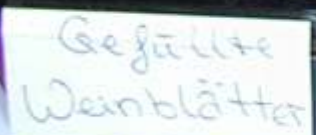 Gefüllte
Weinblätter